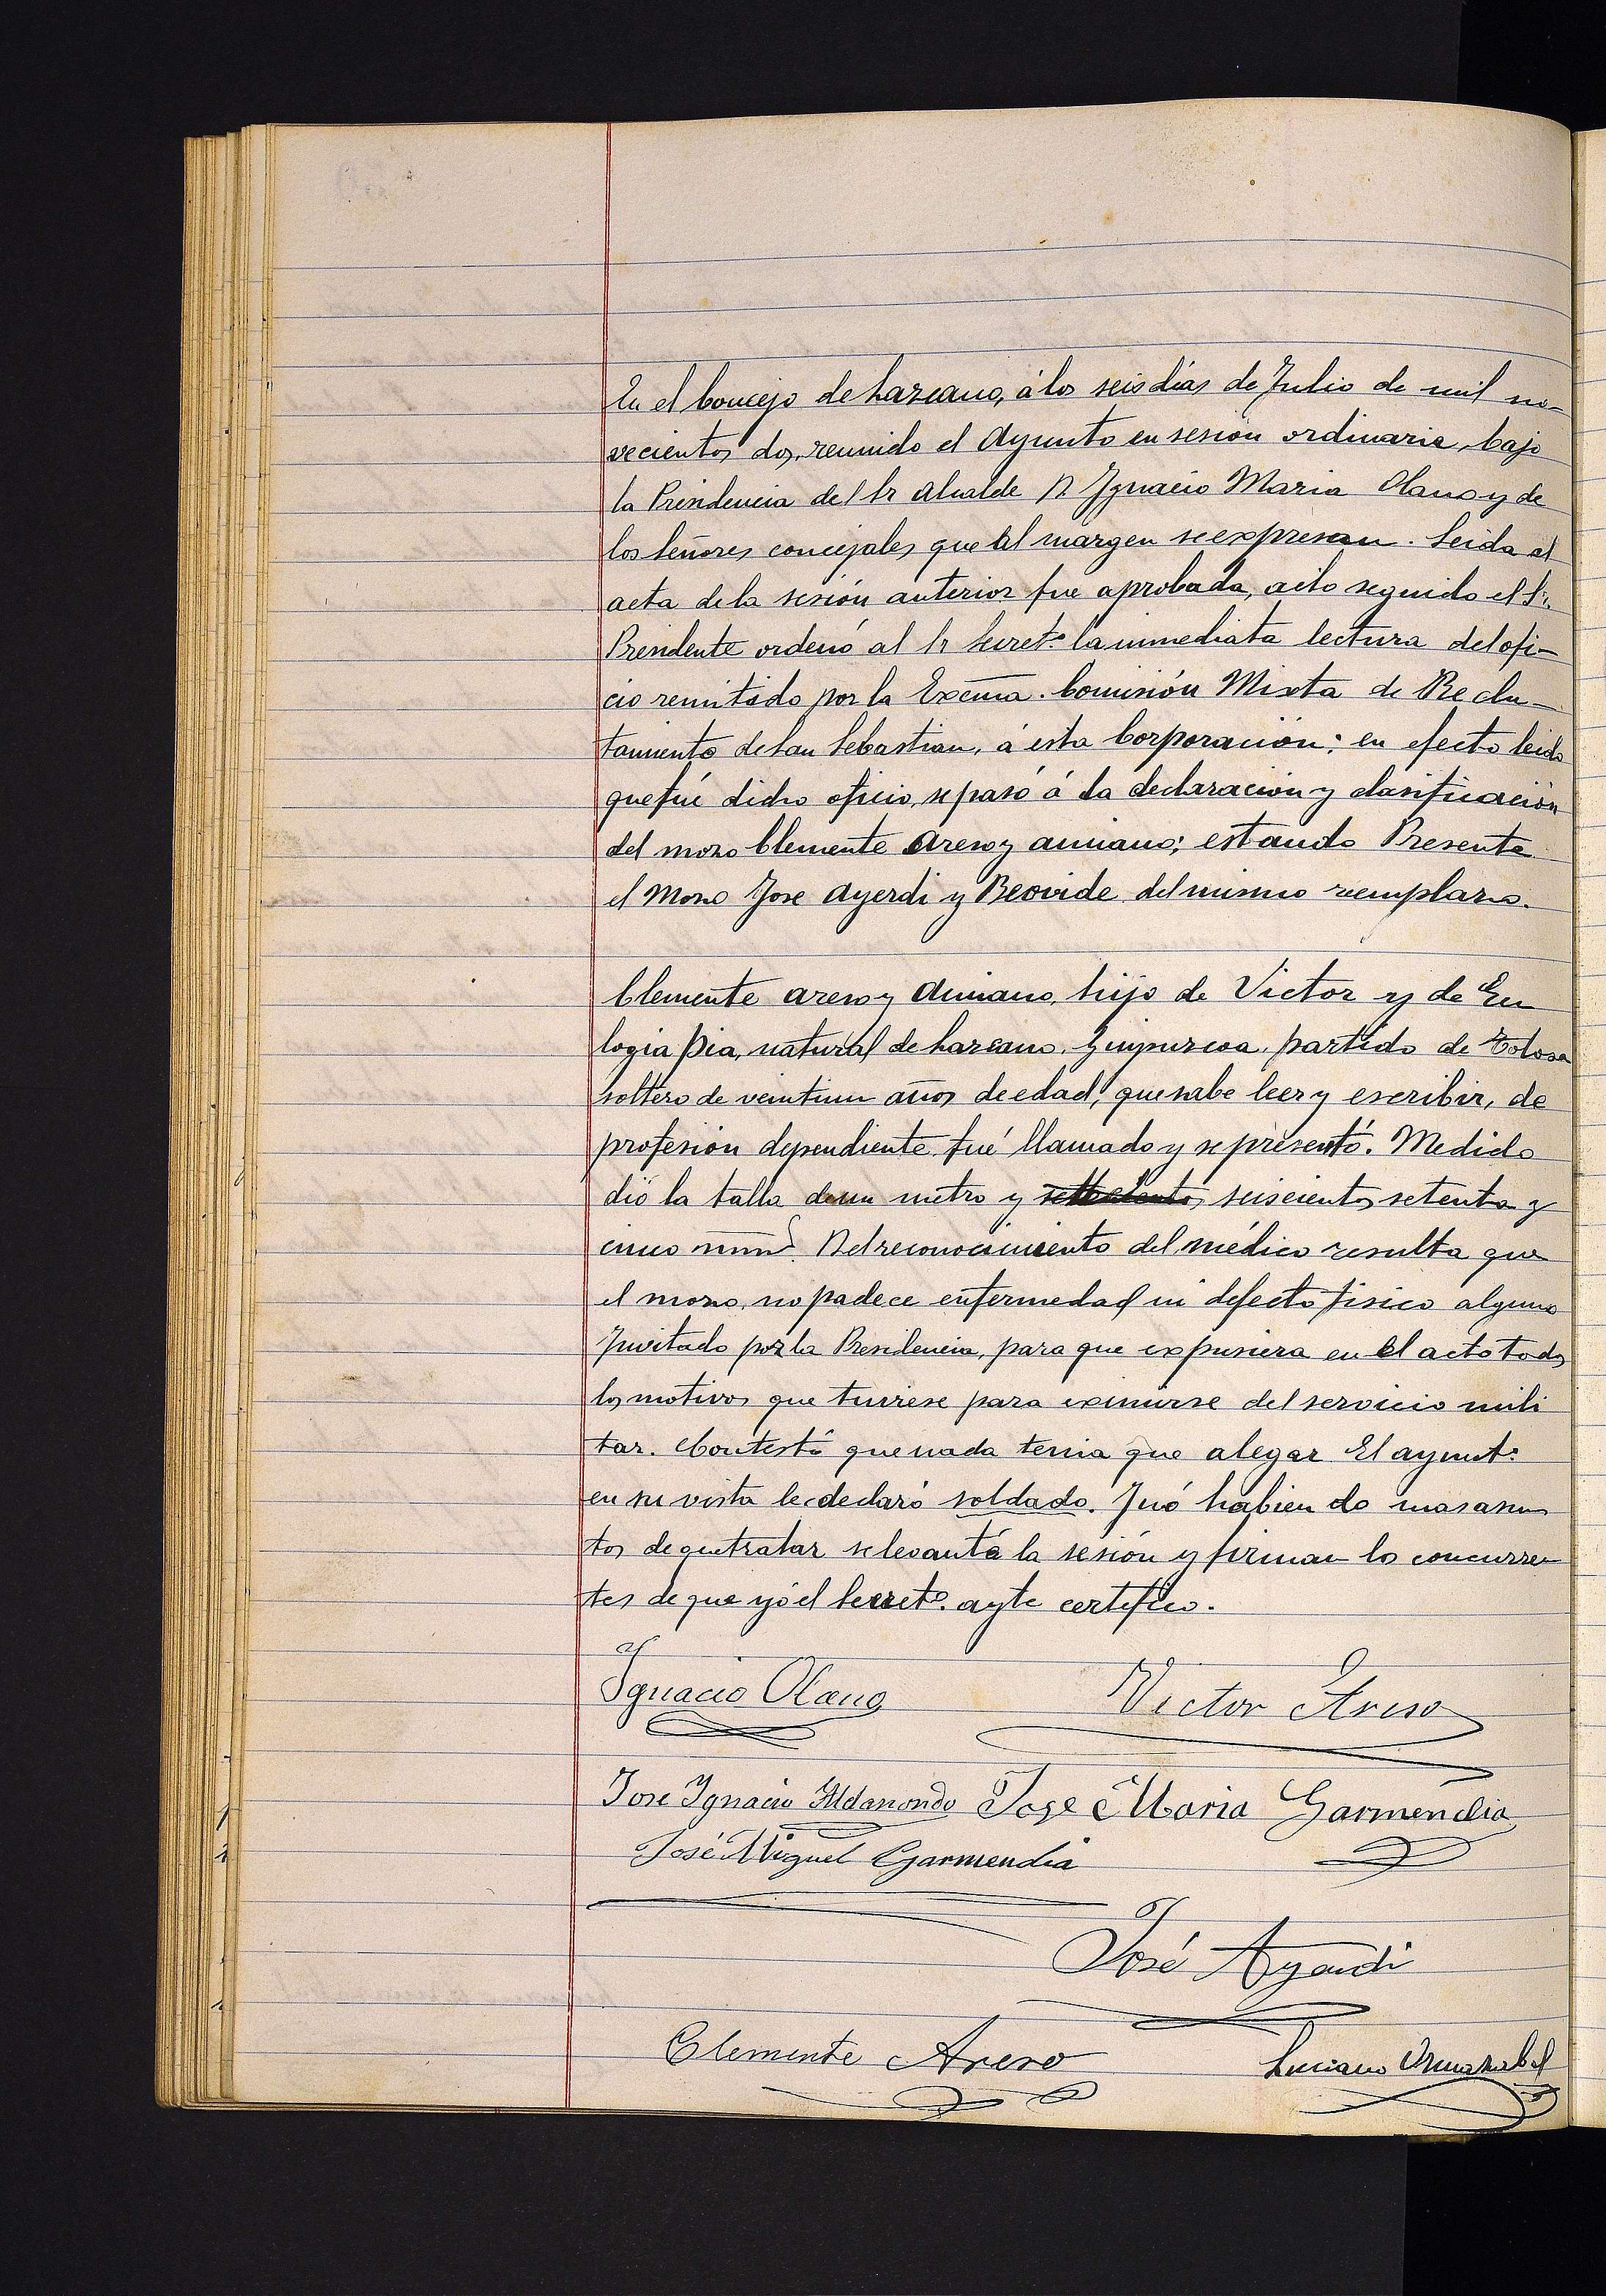 En el Concejo de Lazcano, á los seis días de Julio de mil no-
vecientos dos, reunido el Ayunto en sesión ordinaria, bajo
la Presidencia del Sr Alcalde D Ygnacio Maria Olano y de
los Señores concejales que al margen se expresan. Leida el
acta de la sesión anterior fue aprobada, acto seguido el Sr.
Presidente ordenó al Sr Secretº la inmediata lectura del ofi-
cio remitido por la Excma. Comisión Mixta de Reclu-
tamiento de San Sebastian, á esta Corporación: en efecto leido
que fué dicho oficio, se pasó á la declaración y clasificación
del mozo Clemente Areso y Amiano; estando Presente
el Mozo Jose Ayerdi y Beovide del mismo remplazo.
Clemente Areso y Amiano, hijo de Victor y de Eu
logia Pia, natural de Lazcano, Guipuzcoa, partido de Tolosa
soltero de veintiun años de edad, que sabe leer y escribir, de
profesión dependiente fué llamado y se presentó. Medido
dió la talla de un metro y seiscientos setenta y
cinco mm. Del reconocimiento del médico resulta que
el mozo, no padece enfermedad ni defecto fisico alguno
Invitado por la Presidencia, para que expusiera en el acto todos
los motivos que tuviese para eximirse del servicio mili
tar. Contestó que nada tenia que alegar El ayuntº
en su vista le declaró soldado. Y nó habiendo mas asun
tos de que tratar se levantó la sesión y firman los concurren
tes de que yo el Secretº. ayte certifico.
Ygnacio Olano Victor Areso
Jose Ygnacio Aldanondo Jose Maria Garmendia
José Miguel Garmendia
José Ayerdi
Clemente Areso Luciano Urmazabal